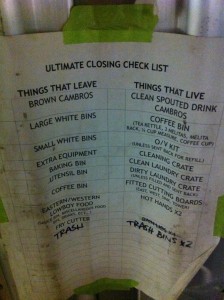 ULTIMATE CLOSING CHECK LIST
THINGS THAT LEAVE
BROWN CAMBROS
LARGE WHITE BINS
SMALL WHITE BINS
EXTRA EQUIPMENT
BAKING BIN
UTENSIL BIN
COFFEE BIN
EASTERN/WESTERN
COWBOY FOOD
FRY CUTTER
TRASH
THINGS THAT LIVE
CLEAN SPOUTED DRINK
CAMBROS
COFFEE BIN
(TEA KETTLE, MELITA
COFFEE CUP)
O/V KIT
(UNLESS SENT BACK FOR REFILL)
CLEANING CRATE
CLEAN LAUNDRY CRATE
DIRTY LAUNDRY CRATE
FITTED CUTTING BOARDS
HOT HANDS X2
TRASH BINS X2